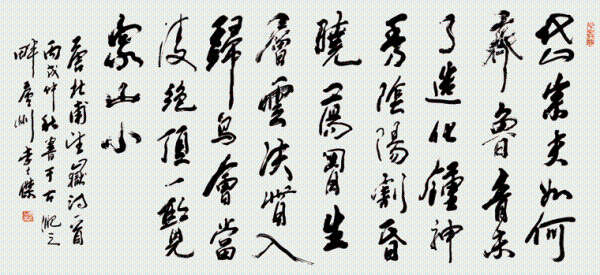 岱宗夫如何
齊魯青未
了造化鍾神
秀陰陽割昏
曉蕩胷生
層雲決眥入
歸鳥會當
凌絕頂一覽
眾山小
唐杜甫望嶽詩一首
丙戌仲秋書于古淝之
畔廬州李傑